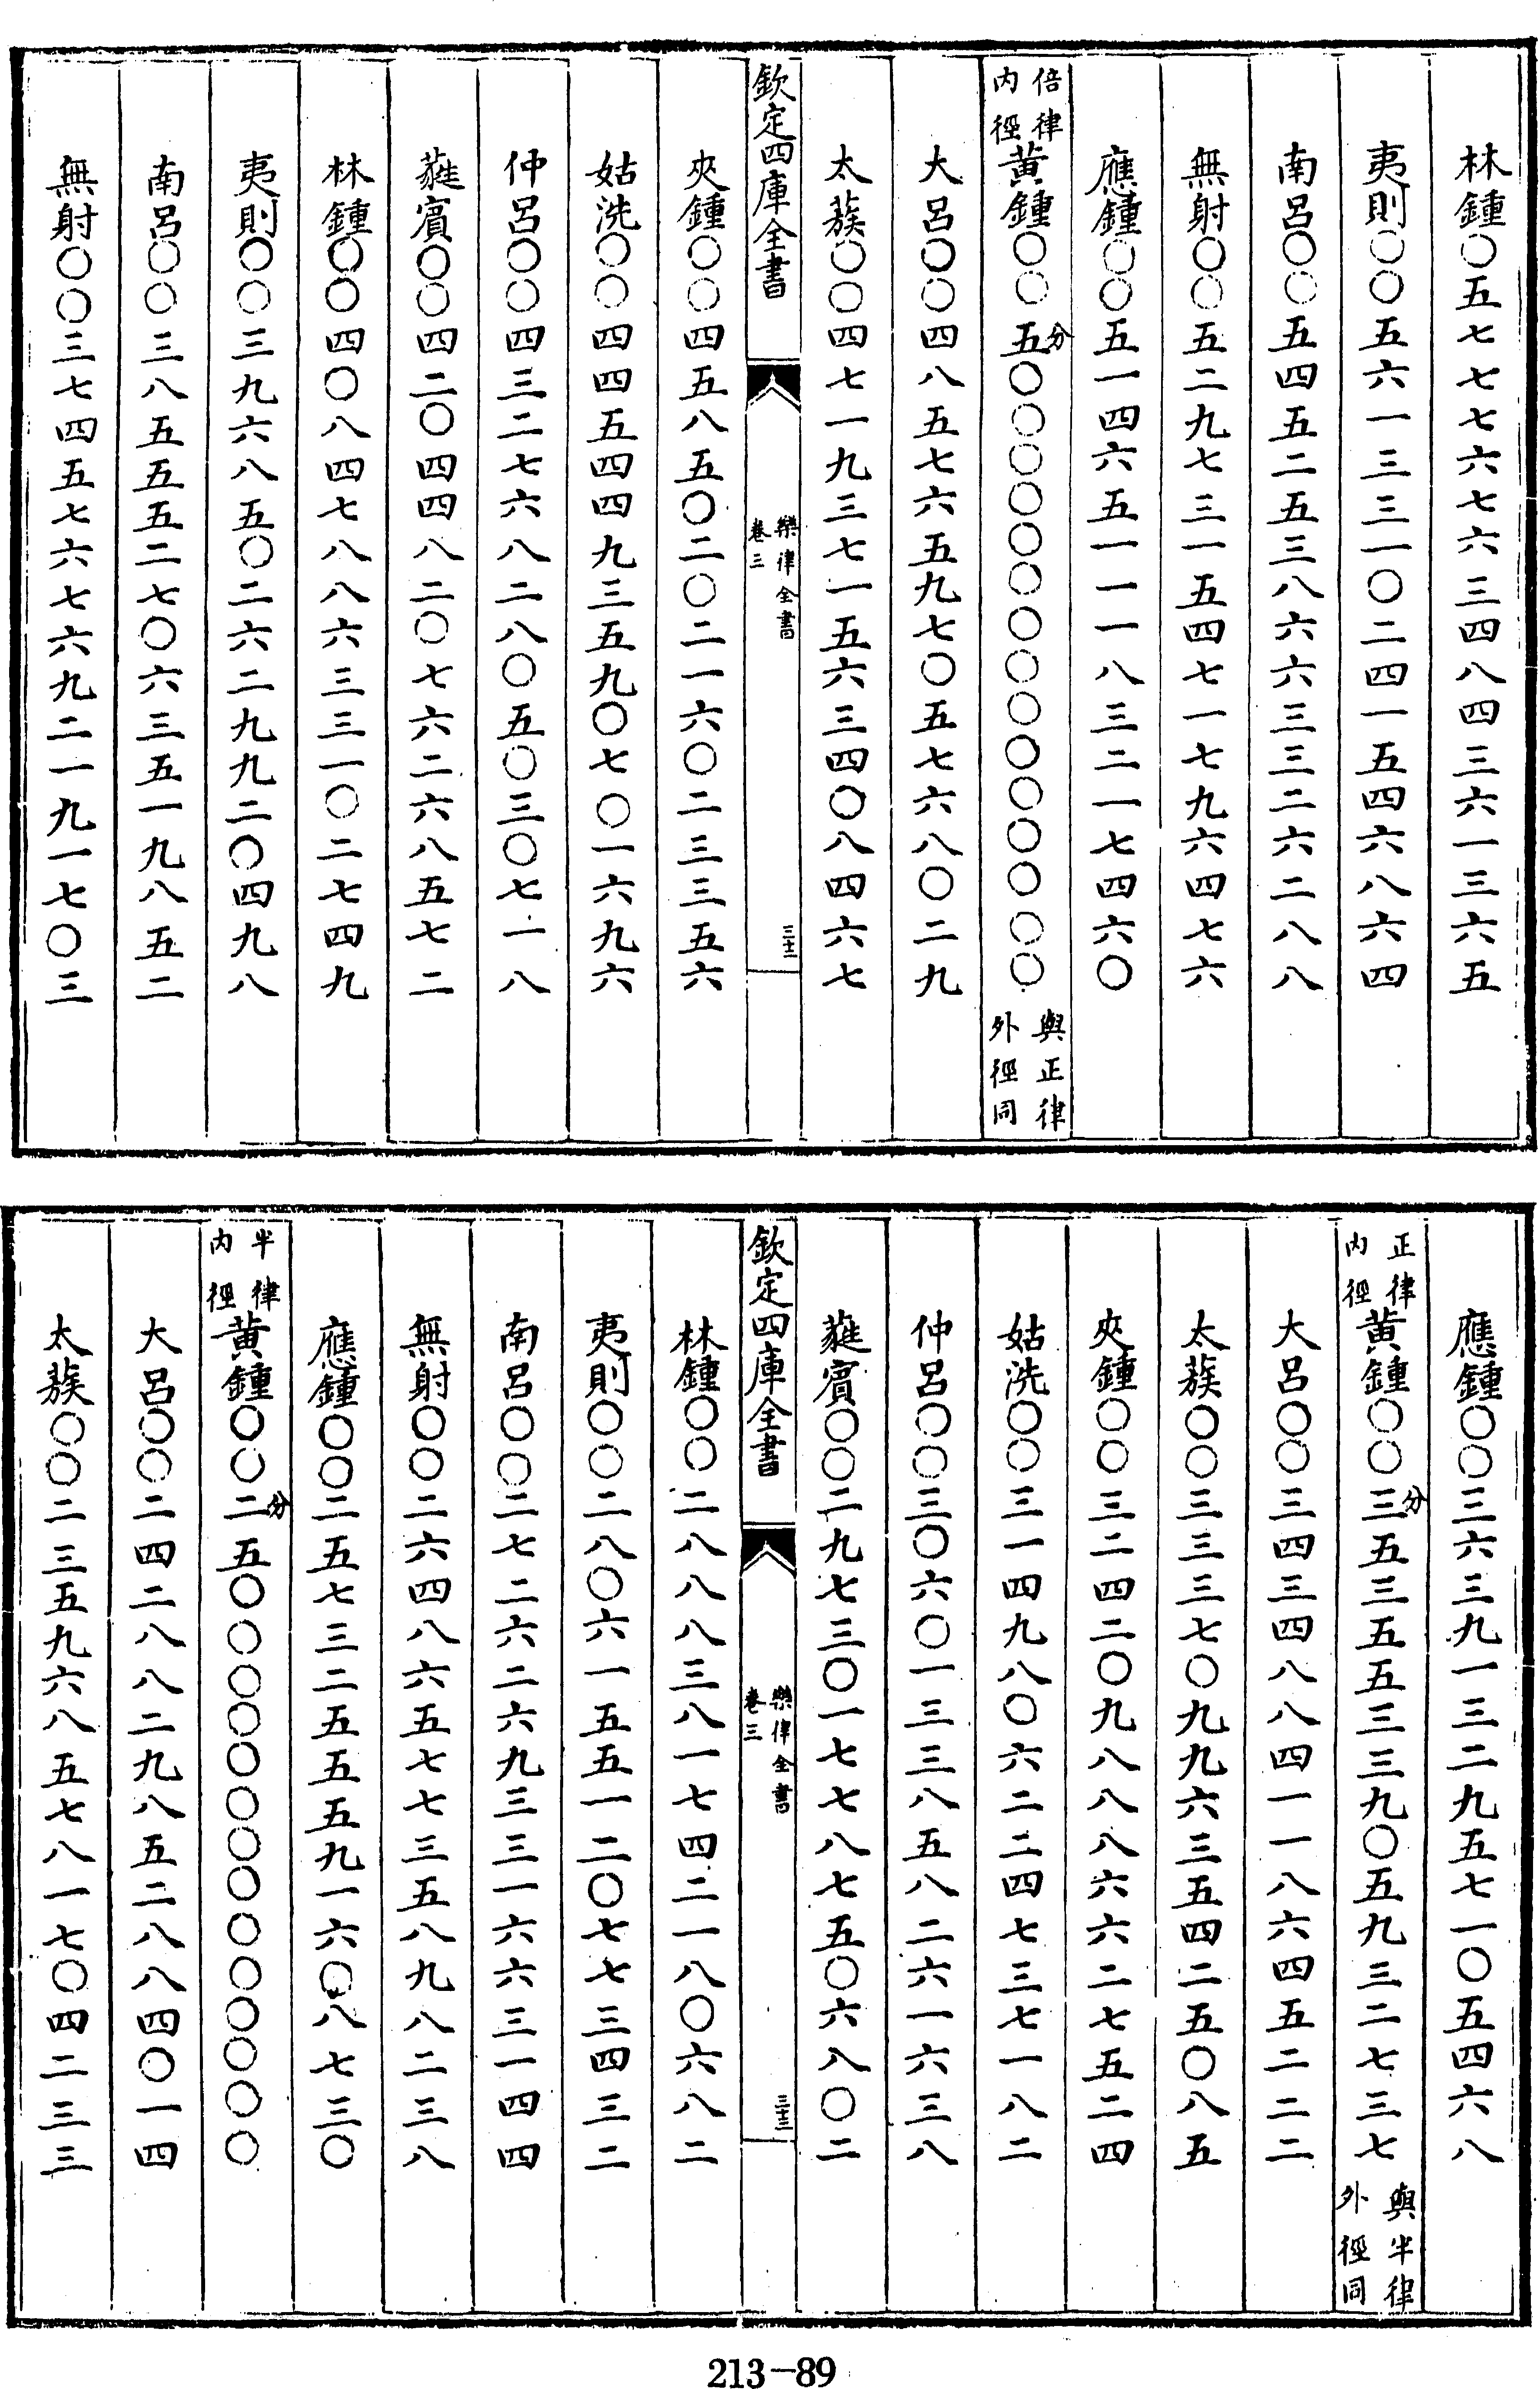 林鍾〇五七七六七六三四八四三六一三六五
夷則〇〇五六一三三一〇二四一五四六八六四
南呂〇〇五四五二五三八六六三三二六二八八
無射〇〇五二九七三一五四七一七九六四七六
應鍾〇〇五一四六五一一一八三二一七四六〇
倍律內徑黃鍾〇〇五分〇〇〇〇〇〇〇〇〇〇〇〇〇〇〇與正律外徑同
大呂〇〇四八五七六五九七〇五七六八〇二九
太蔟〇〇四七一九三七一五六三四〇八四六七
欽定四庫全書 樂律全書卷三 三十二
夾鍾〇〇四五八五〇二〇二一六〇二三三五六
姑洗〇〇四四五四四九三五九〇七〇一六九六
仲呂〇〇四三二七六八二八〇五〇三〇七一八
蕤賓〇〇四二〇四四八二〇七六二六八五七二
林鍾〇〇四〇八四七八八六三三一〇二七四九
夷則〇〇三九六八五〇二六二九九二〇四九八
南呂〇〇三八五五五二七〇六三五一九八五二
無射〇〇三七四五七六七六九二一九一七〇三
應鍾〇〇三六三九一三二九五七一〇五四六八
正律內徑黃鍾〇〇三分五三五五三三九〇五九三二七三七與半律外徑同
大呂〇〇三四三四八八四一一八六四五二二二
太蔟〇〇三三三七〇九九六三五四二五〇八五
夾鍾〇〇三二四二〇九八八八六六二七五二四
姑洗〇〇三一四九八〇六二二四七三七一八二
仲呂〇〇三〇六〇一三三八五八二六一六三八
蕤賓〇〇二九七三〇一七七八七五〇六八〇二
欽定四庫全書 樂律全書卷三 三十三
林鍾〇〇二八八八三八一七四二一八〇六八二
夷則〇〇二八〇六一五五一二〇七七三四三二
南呂〇〇二七二六二六九三三一六六三一四四
無射〇〇二六四八六五七七三五八九八二三八
應鍾〇〇二五七三二五五五九一六〇八七三〇
半律內徑黃鍾〇〇二分五〇〇〇〇〇〇〇〇〇〇〇〇〇〇
大呂〇〇二四二八八二九八五二八八四〇一四
太蔟〇〇二三五九六八五七八一七〇四二三三
213-89